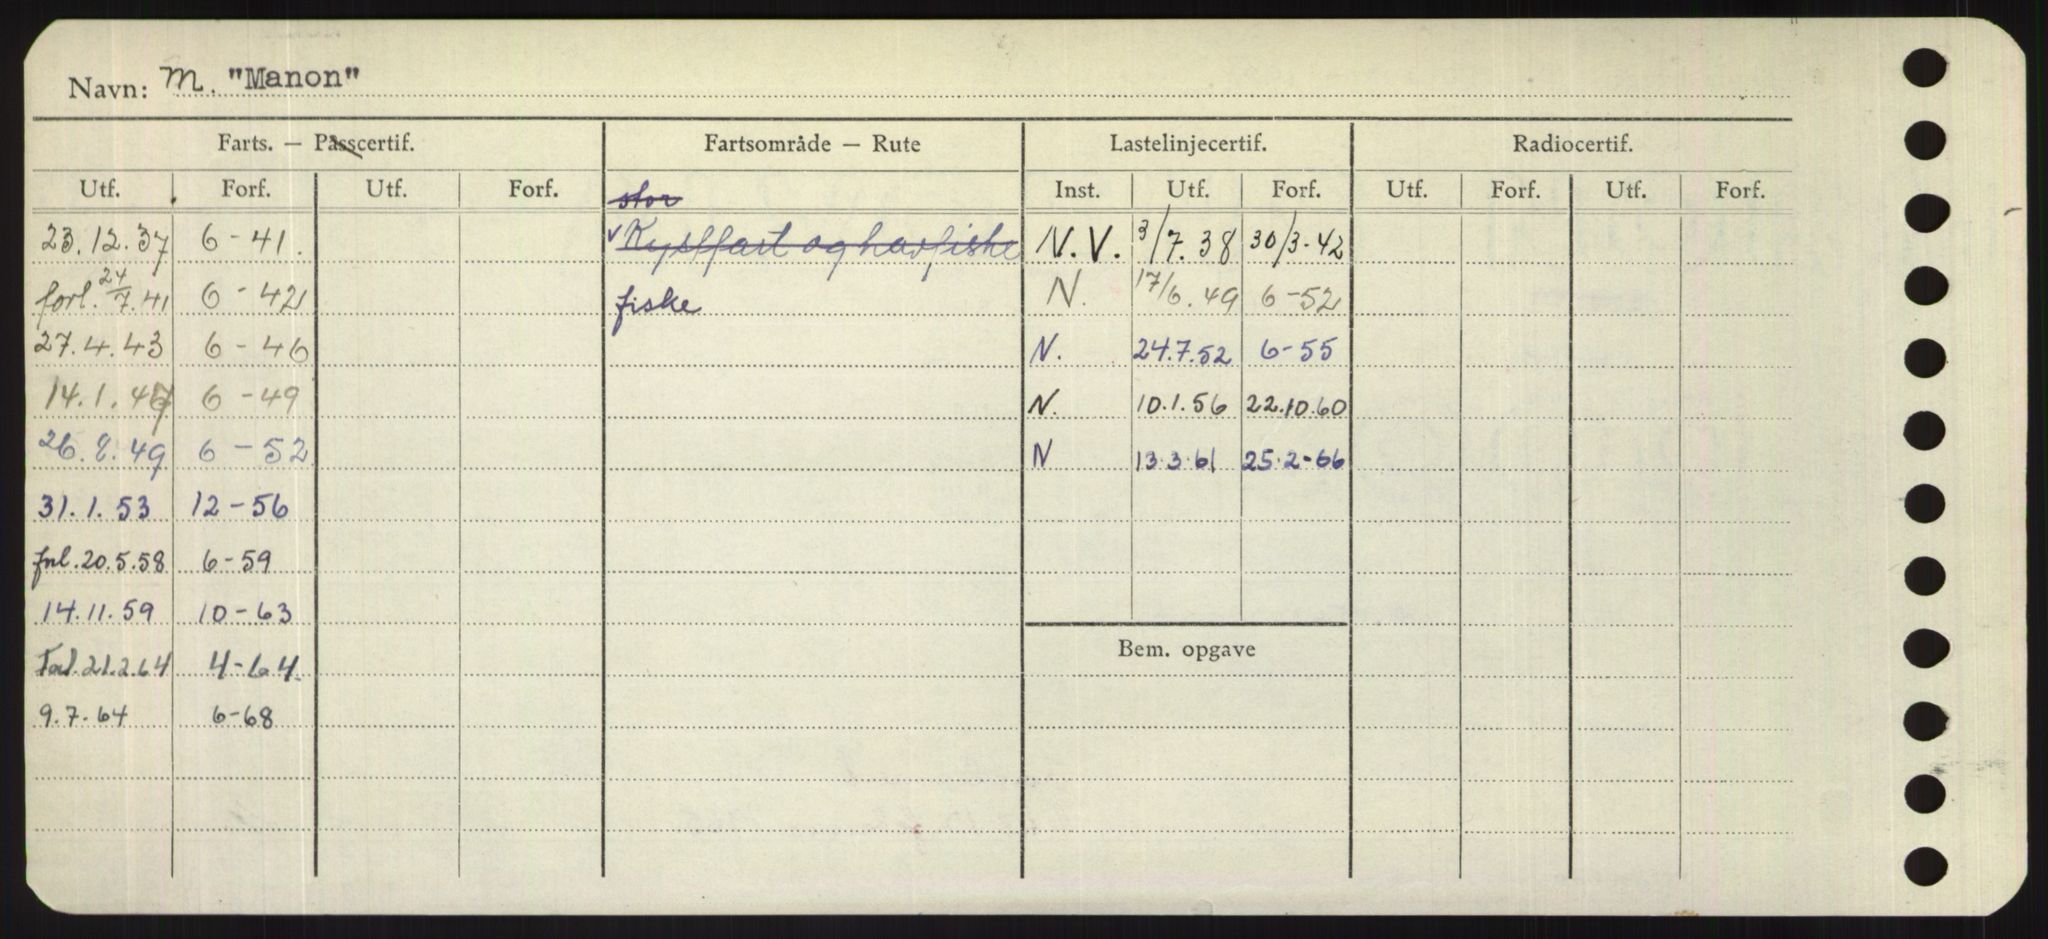 Navn: M. "Manon"
Farts. — Passcertif. Fartsområde — Rute Lastelinjecertif. Radiocertif.
Utf. Forf. Utf. Forf. Inst. Utf. Forf. Utf. Forf. Utf. Forf.
stor
23.12.37 6-41. v Kystfart og havfiske N.V. 3/7.38 30/3-42
forl. 24/7.41 6-42 fiske N. 17/6.49 6-52
27.4.43 6-46 N. 24.7.52 6-55
14.1.47 6-49 N. 10.1.56 22.10.60
26.8.49 6-52 N 13.3.61 25.2-66
31.1.53 12-56
forl.20.5.58 6-59
14.11.59 10-63
Bem. opgave
Forl.21.2.64 4-64
9.7.64 6-68